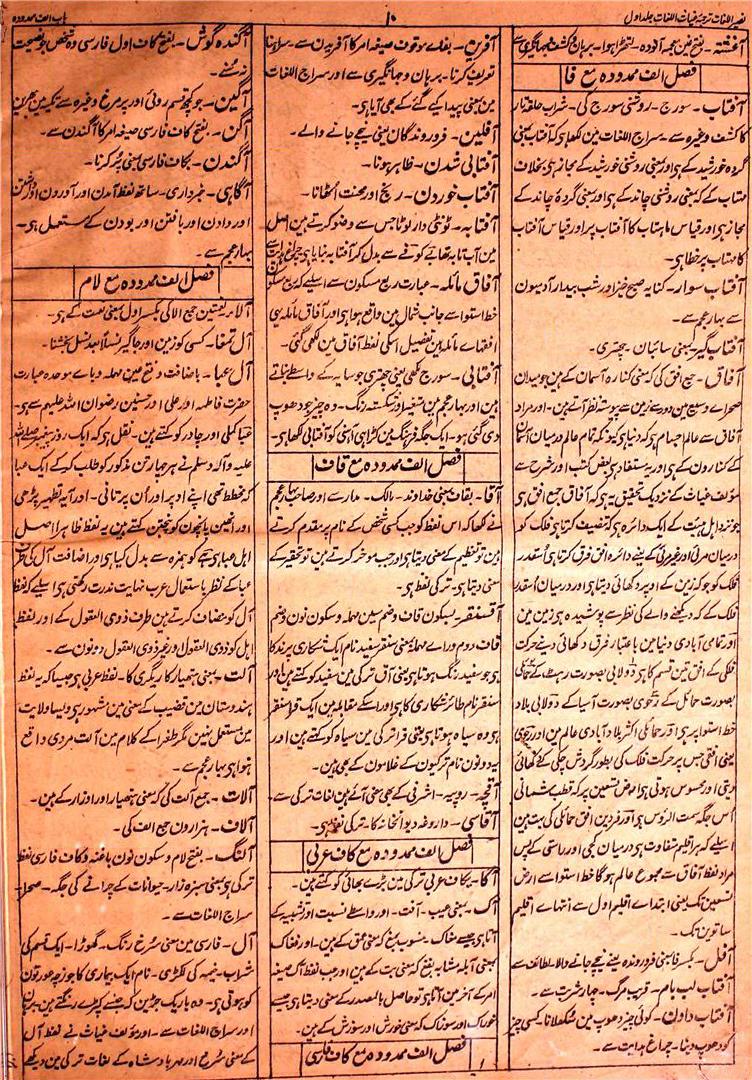 نصیر اللغات ترجمۂ غیاث اللغات جلد اول
۱۰
باب الف ممدودہ
آغشتہ - بفتح غین معجمہ آلودہ - لتھڑا ہوا - برہان و کشف و جہانگیری سے
فصل الف ممدودہ مع فا
آفتاب - سورج - روشنی سورج کی - شراب
کاکشف وغیرہ سے - سراج اللغات مین لکھا ہی کہ آفتاب بمعنی
گروہ خورشید کے ہی اور بمعنی روشنی خورشید کے مجاز ہی بخلاف
مہتاب کے کہ بمعنی روشنی چاند کے ہی اور بمعنی گروہ چاند کے
مجاز ہی اور قیاس ماہتاب کا آفتاب پر اور قیاس آفتاب
کا مہتاب پر خطا ہی -
آفتاب سوار - کنایہ صبح خیز اور شب بیدار آدمیون
سے بہار عجم سے -
آفتاب گیر بمعنی سائبان - چھتری -
آفاق - جمع افق کی بمعنی کنارہ آسمان کے ہین جو میدان
صحراے وسیع مین دور سے زمین سے پیوستہ نظر آتے ہین - اور مراد
آفاق سے عالم اجسام ہی کہ دنیا ہی کیونکہ تمام عالم درمیان آسمان
کے کنارون کے ہی اور یہ مستفاد ہی بعض کتب اور شرح سے
مؤلف غیاث کے نزدیک تحقیق یہ ہی کہ آفاق جمع افق ہی
جو نزد اہل ہیئت کے ایک دائرہ ہی کہ تنصیف کرتا ہی فلک کو
درمیان مرئی اور غیر مرئی کے یعنے دائرہ افق فرق کرتا ہی اسقدر
فلک کو جو کہ زمین کے اوپر دکھائی دیتا ہی اور درمیان اسقدر
فلک کے کہ دیکھنے والے کی نظر سے پوشیدہ ہی زیر زمین مین
اور تمامی آبادی دنیا مین باعتبار فرق دکھائی دینے حرکت
فلکی کے افق تین قسم کا ہی دولابی بصورت رہٹ کے حمائلی
بصورت حمائل کے رحوی بصورت آسیا کے دولابی بلاد
خط استوا پر ہی اور حمائلی اکثر بلاد آبادی عالم مین اور رحوی
یعنی افقی جس پر حرکت فلک کی بطور گردش چکی کے دکھائی
دیتی اور محسوس ہوتی ہی ارض تسعین پر کہ قطب شمالی
اس جگہ سمت الرؤس ہی اور فردین افق حمائلی کی بہت ہین
اسلیے کہ ہر اقلیم متفاوت ہی درمیان کجی اور راستی کے پس
مراد لفظ آفاق سے مجموع عالم ہوگا خط استوا سے ارض
تسعین تک یعنی ابتداے اقلیم اول سے انتہاے اقلیم
ساتوین تک -
آفل - بکسر فا بمعنی فرورونده یعنے نیچے جانے والا - لطائف سے
آفتاب لب بام - قریب مرگ - چار شربت سے -
آفتاب دادن - کوئی چیز دھوپ مین سکھلانا - کسی چیز
کو دھوپ دینا - چراغ ہدایت سے -
آفرین - بفاے موقوف صیغہ امر کا آفریدن سے - سراہنا
تعریف کرنا - برہان و جہانگیری سے اور سراج اللغات
مین بمعنی پیدا کیے گئے کے بھی آیا ہی -
آفلین - فروروندگان یعنی نیچے جانے والے -
آفتابی شدن - ظاہر ہونا -
آفتاب خوردن - رنج اور محنت اٹھانا -
آفتابہ - ٹونٹی دار لوٹا جس سے وضو کرتے ہین اصل
مین آب تابہ تھا بے کو فے سے بدل کر آفتابہ بنایا ہی
آفاق مائلہ - عبارت ربع مسکون سے اسلیے کہ ربع مسکون
خط استوا سے جانب شمال مین واقع ہوا ہی اور آفاق مائلہ ہی
افقہاے مائلہ مین تفصیل اسکی لفظ آفاق مین لکھی گئی -
آفتابی - سورج مکھی یعنی چھتری جو سایہ کے واسطے بناتے
ہین اور بہار عجم مین متغیر اور شکستہ رنگ - وہ چیز جو دھوپ
دی گئی ہو - ایک جگہ فرہنگ مین کڑاہی آہنی کو آفتابی لکھا ہی -
فصل الف ممدودہ مع قاف
آقا - بقاف بمعنی خداوند - مالک - مدار سے اور صاحب بہار عجم
نے لکھا کہ اس لفظ کو جب کسی شخص کے نام پر مقدم کرتے
ہین تو تعظیم کے معنی دیتا ہی اور جب مؤخر کرتے ہین تو تحقیر کے
معنی دیتا ہی - ترکی لفظ ہی -
آقسنقر - بسکون قاف و ضم سین مہملہ و سکون نون و ضم
قاف دوم و راے مہملہ بمعنی سنقر سفید نام ایک شکاری پرند کا
ہی جو سفید رنگ ہوتا ہی یعنی آق ترکی مین سفید کو کہتے ہین اور
سنقر نام طائر شکاری کا ہی اور اسکے مقابلہ مین ایک قرا سنقر
ہی وہ سیاہ ہوتا ہی یعنی قرا ترکی مین سیاہ کو کہتے ہین اور
یہ دونون نام ترکیون کے غلامون کے بھی ہین -
آقچہ - روپیہ - اشرفی کے بھی معنی آئے ہین لغات ترکی سے -
آقاسی - داروغہ دیوانخانہ کا - ترکی لفظ ہی -
فصل الف ممدودہ مع کاف عربی
آکا - بکاف عربی ترکی مین بڑے بھائی کو کہتے ہین -
آک - بمعنی عیب - آفت - اور واسطے نسبت اور تشبیہ کے
آتا ہی جیسے مغاک - منسوب بمغ کہ بمعنی عمق کے ہین - اور مغاک
بمعنی آبلہ مشابہ بفغ کہ بمعنی بت کے ہین اور جب لفظ آک صیغہ
امر کے آخر مین آتا ہی تو حاصل بالمصدر کے معنی دیتا ہی جیسے
خوراک اور سوزاک کہ بمعنی خورش اور سوزش کے ہین -
فصل الف ممدودہ مع کاف فارسی
آگندہ گوش - بفتح کاف اول فارسی وہ شخص جو نصیحت
نہ سنے -
آگین - جو کچھ قسم روئی اور پر مرغ وغیرہ سے تکیہ مین بھرین
آگن - بفتح کاف فارسی صیغہ امر کا آگندن سے -
آگندن - بکاف فارسی بمعنی پُر کرنا -
آگاہی - خبرداری - ساتھ لفظ آمدن اور آوردن اور داشتن
اور دادن اور یافتن اور بودن کے مستعمل ہی -
بہار عجم سے -
فصل الف ممدودہ مع لام
آلاء - بفتحین جمع الا کی بکسر اول بمعنی نعمت کے ہی -
آل تمغا - کسی کو زمین اور جاگیر نسلاً بعد نسل بخشنا -
آل عبا - باضافت و فتح عین مہملہ و باے موحدہ عبارت
حضرت فاطمہ اور علی اور حسنین رضوان اللہ علیہم سے ہی -
عبا کملی اور چادر کو کہتے ہین - نقل ہی کہ ایک روز پیغمبر صلی اللہ
علیہ و آلہ وسلم نے ہر چہار تن مذکور کو طلب کیا کہ ایک عبا
کہ مخطط تھی اپنے اوپر اور اُن پر تانی - اور آیہ تطہیر پڑھی
اور انھین پانچون کو پنجتن کہتے ہین یہ لفظ ظاہرا اصل
اہل عبا ہی ہے کو ہمزہ سے بدل کیا ہی اور اضافت آل کی طرف
عبا کے نظر باستعمال عرب نہایت ندرت رکھتی ہی اسلیے کہ لفظ
آل کو مضاف کرتے ہین طرف ذوی العقول کے اور لفظ
اہل کو ذوی العقول و غیر ذوی العقول دونون سے -
آلت - بمعنی ہتھیار کاریگری کا - لفظ عربی ہی جیسا کہ یہ لفظ
ہندوستان مین قضیب کے معنی مین مشہور ہی ویسا ولایت
مین مستعمل نہین مگر طغرا کے کلام مین آلت مردی واقع
ہوا ہی بہار عجم سے -
آلات - جمع آلت کی کہ بمعنی ہتھیار اور اوزار کے ہین -
آلاف - ہزارون جمع الف کی -
آلنگ - بفتح لام و سکون نون با غنہ و کاف فارسی لفظ
ترکی ہی بمعنی سبزہ زار - حیوانات کے چرانے کی جگہ - صحرا -
سراج اللغات سے -
آل - فارسی مین بمعنی سُرخ رنگ - گھوڑا - ایک قسم کی
شراب - خیمہ کی لکڑی - نام ایک بیماری کا جو زچہ عورتون
کو ہوتی ہی - وہ باریک جڑین کہ جنسے کپڑے رنگتے ہین برہان
اور سراج اللغات سے - اور مؤلف غیاث نے لفظ آل
کے معنی سُرخ اور مہر بادشاہ کے لغات ترکی مین دیکھے